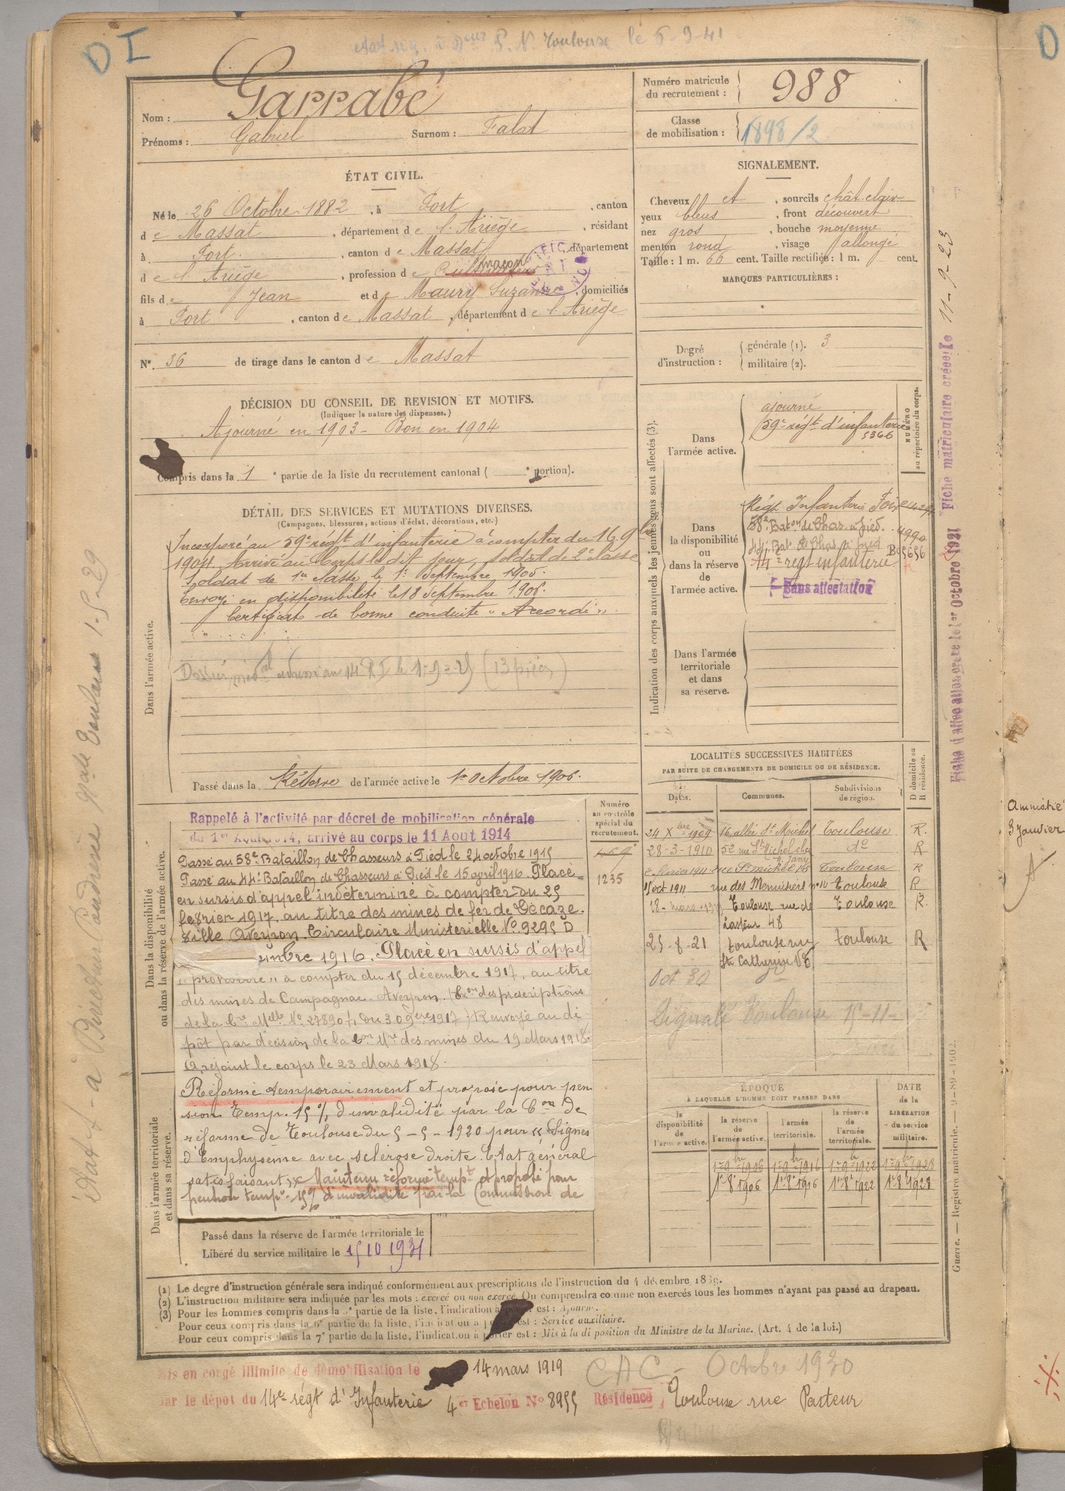 D I
Toulouse le 6-9-41
Nom : Garrabé
Prénoms : Gabriel Surnom : Falot
Numéro matricule
du recrutement : 988
Classe
de mobilisation : 1898/2
ÉTAT CIVIL.
Né le 26 Octobre 1882, à Port, canton
de Massat, département de l'Ariège, résidant
à Port, canton de Massat, département
de l'Ariège, profession de Cultivateur maçon
fils de Jean et de Maury Suzanne, domiciliés
à Port, canton de Massat, département de l'Ariège
N° 36 de tirage dans le canton de Massat
SIGNALEMENT.
Cheveux et, sourcils chât clair
yeux bleus, front découvert
nez gros, bouche moyenne
menton rond, visage allongé
Taille : 1 m. 66 cent. Taille rectifiée : 1 m. cent.
MARQUES PARTICULIÈRES :
Degré
d'instruction :
générale (1). 3
militaire (2).
DÉCISION DU CONSEIL DE REVISION ET MOTIFS.
(Indiquer la nature des dispenses.)
Ajourné en 1903 - Bon en 1904
Compris dans la 1e partie de la liste du recrutement cantonal ( portion).
DÉTAIL DES SERVICES ET MUTATIONS DIVERSES.
(Campagnes, blessures, actions d'éclat, décorations, etc.)
Dans l'armée active.
Incorporé au 59e régt d'infanterie à compter du 16 9bre
1904. Arrivé au corps le dit jour, soldat de 2e classe
Soldat de 1re classe le 1er Septembre 1905.
Envoyé en disponibilité le 18 Septembre 1906.
Certificat de bonne conduite "Accordé".
Passé dans la Réserve de l'armée active le 1er Octobre 1906.
Indication des corps auxquels les jeunes gens sont affectés (3).
NUMÉRO
au répertoire du corps.
Dans
l'armée active.
ajourné
59e régt d'infanterie
5366
Dans
la disponibilité
ou
dans la réserve
de
l'armée active.
Régt Infanterie Foix
58e Baton de Chas. à pied 4990
44e Bat. de Chas. à pied
14e régt infanterie
Sans affectation
Dans l'armée
territoriale
et dans
sa réserve.
Fiche matriculaire créée le 11-9-23
LOCALITÉS SUCCESSIVES HABITÉES
PAR SUITE DE CHANGEMENTS DE DOMICILE OU DE RÉSIDENCE.
Dates. Communes. Subdivisions
de région. D domicile ou
R résidence.
24 Xbre 1909 16 allée St Michel Toulouse R.
28-3-1910 52 rue St Michel do R
Toulouse R
7 oct 1911 rue des Menuisiers no 10 Toulouse R
18- Toulouse rue de Toulouse R.
Pasteur 48
25-8-21 Toulouse rue Toulouse R
Ste Catherine
Oct 30 do
Signalé Toulouse
Dans la disponibilité
ou dans la réserve de l'armée active.
Numéro
au contrôle
spécial du
recrutement.
1235
Rappelé à l'activité par décret de mobilisation générale
du 1er Août 1914, arrivé au corps le 11 Août 1914
Passé au 58e Bataillon de Chasseurs à Pied le 24 octobre 1915
Passé au 44e Bataillon de Chasseurs à Pied le 15 avril 1916. Placé
en sursis d'appel indéterminé à compter du 25
février 1917, au titre des mines de fer de Decaze-
ville Aveyron. Circulaire Ministerielle No 9295 D
embre 1916. Placé en sursis d'appel
"provisoire" à compter du 15 décembre 1917, au titre
des mines de Campagnac. Aveyron. des prescriptions
de la Cre Mlle No 27890 du 30 9bre 1917) Renvoyé au dé-
pôt par décision de la des mines du 19 Mars 1918.
Rejoint le corps le 23 Mars 1918.
Dans l'armée territoriale
et dans sa réserve.
Réformé temporairement et proposé pour pen-
sion Temp. 15 % d'invalidité par la Con de
réforme de Toulouse du 5-5-1920 pour "Signes
d'Emphysème avec sclérose droite. Etat général
satisfaisant". Maintenu réformé tempre et proposé pour
pension tempre 15% d'invalidité par la Commission de
Passé dans la réserve de l'armée territoriale le
Libéré du service militaire le 15 10 1931
ÉPOQUE
À LAQUELLE L'HOMME DOIT PASSER DANS
la
disponibilité
de
l'armée active.
la réserve
de
l'armée active.
l'armée
territoriale.
la réserve
de
l'armée
territoriale.
DATE
de la
LIBÉRATION
du service
militaire.
1er 8bre 1906 1er 8bre 1916 1er 8bre 1922 1er 8bre 1928
(1) Le degré d'instruction générale sera indiqué conformément aux prescriptions de l'instruction du 4 décembre 1889.
(2) L'instruction militaire sera indiquée par les mots : exercé ou non exercé. On comprendra comme non exercés tous les hommes n'ayant pas passé au drapeau.
(3) Pour les hommes compris dans la partie de la liste, l'indication à porter est : Ajourné.
Pour ceux compris dans la 6e partie de la liste, l'indication à porter est : Service auxiliaire.
Pour ceux compris dans la 7e partie de la liste, l'indication à porter est : Mis à la disposition du Ministre de la Marine. (Art. 4 de la loi.)
Guerre. — Registre matricule. — 9-89-1902.
Mis en congé illimité de démobilisation le 14 mars 1919
par le dépôt du 14e régt d'Infanterie 4e Echelon No 8955 Résidence Toulouse rue Pasteur
CAC - Octobre 1930
Amnistié
3 Janvier